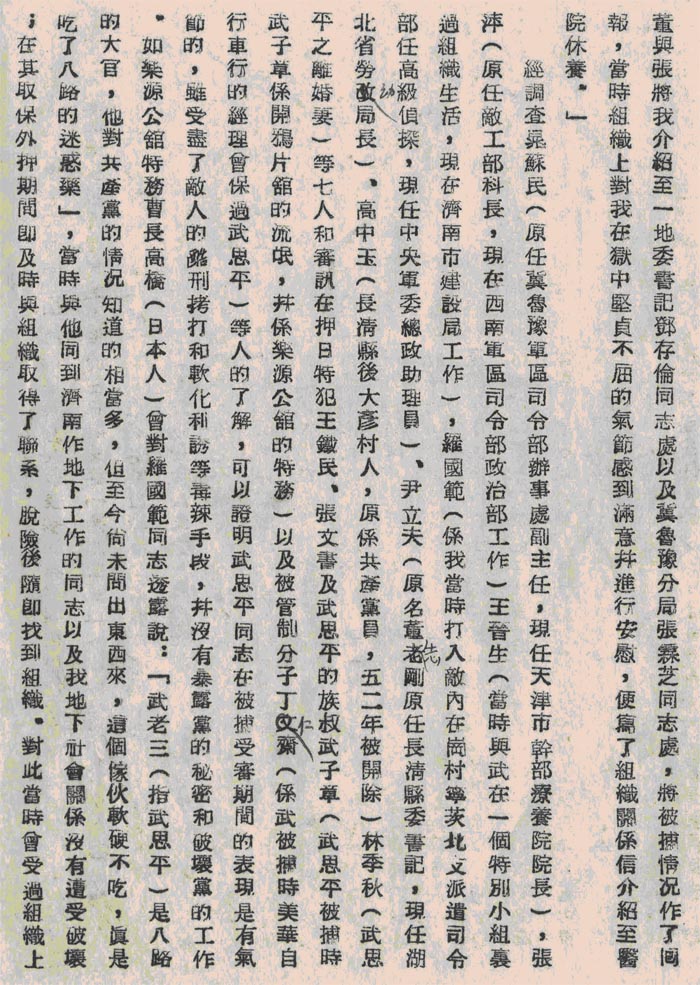 董與張將我介紹至一地委書記鄧存倫同志處以及冀魯豫分局張霖芝同志處，將被捕情况作了囘
報，當時組織上對我在獄中堅貞不屈的氣節感到滿意幷進行安慰，便寫了組織關係信介紹至醫
院休養。」
經調查晁蘇民（原任冀魯豫軍區司令部辦事處副主任，現任天津市幹部療養院院長），張
萍（原任敵工部科長，現在西南軍區司令部政治部工作）王晉生（當時與武在一個特別小組裏
過組織生活，現在濟南市建設局工作），羅國範（係我當時打入敵內在崗村寧茨北支派遣司令
部任高級偵探，現任中央軍委總政助理員）、尹立夫（原名董老剛原任長清縣委書記，現任湖
志
北省勞改局長）、高中玉（長清縣後大彥村人，原係共產黨員，五二年被開除）林季秋（武思
幼
平之離婚妻）等七人和審訊在押日特犯王鐵民、張文書及武思平的族叔武子章（武思平被捕時
武子章係開鴉片館的流氓，幷係樂源公館的特務）以及被管制分子丁文齋（係武被捕時美華自
仁
行車行的經理曾保過武思平）等人的了解，可以證明武思平同志在被捕受審期間的表現是有氣
節的，雖受盡了敵人的酷刑拷打和軟化利誘等毒辣手段，幷沒有暴露黨的秘密和破壞黨的工作
。如樂源公館特務曹長高橋（日本人）曾對羅國範同志透露說：「武老三（指武思平）是八路
的大官，他對共產黨的情况知道的相當多，但至今尙未問出東西來，這個傢伙軟硬不吃，眞是
吃了八路的迷惑藥」，當時與他同到濟南作地下工作的同志以及我地下社會關係沒有遭受破壞
；在其取保外押期間卽及時與組織取得了聯系，脫險後隨卽找到組織。對此當時曾受過組織上